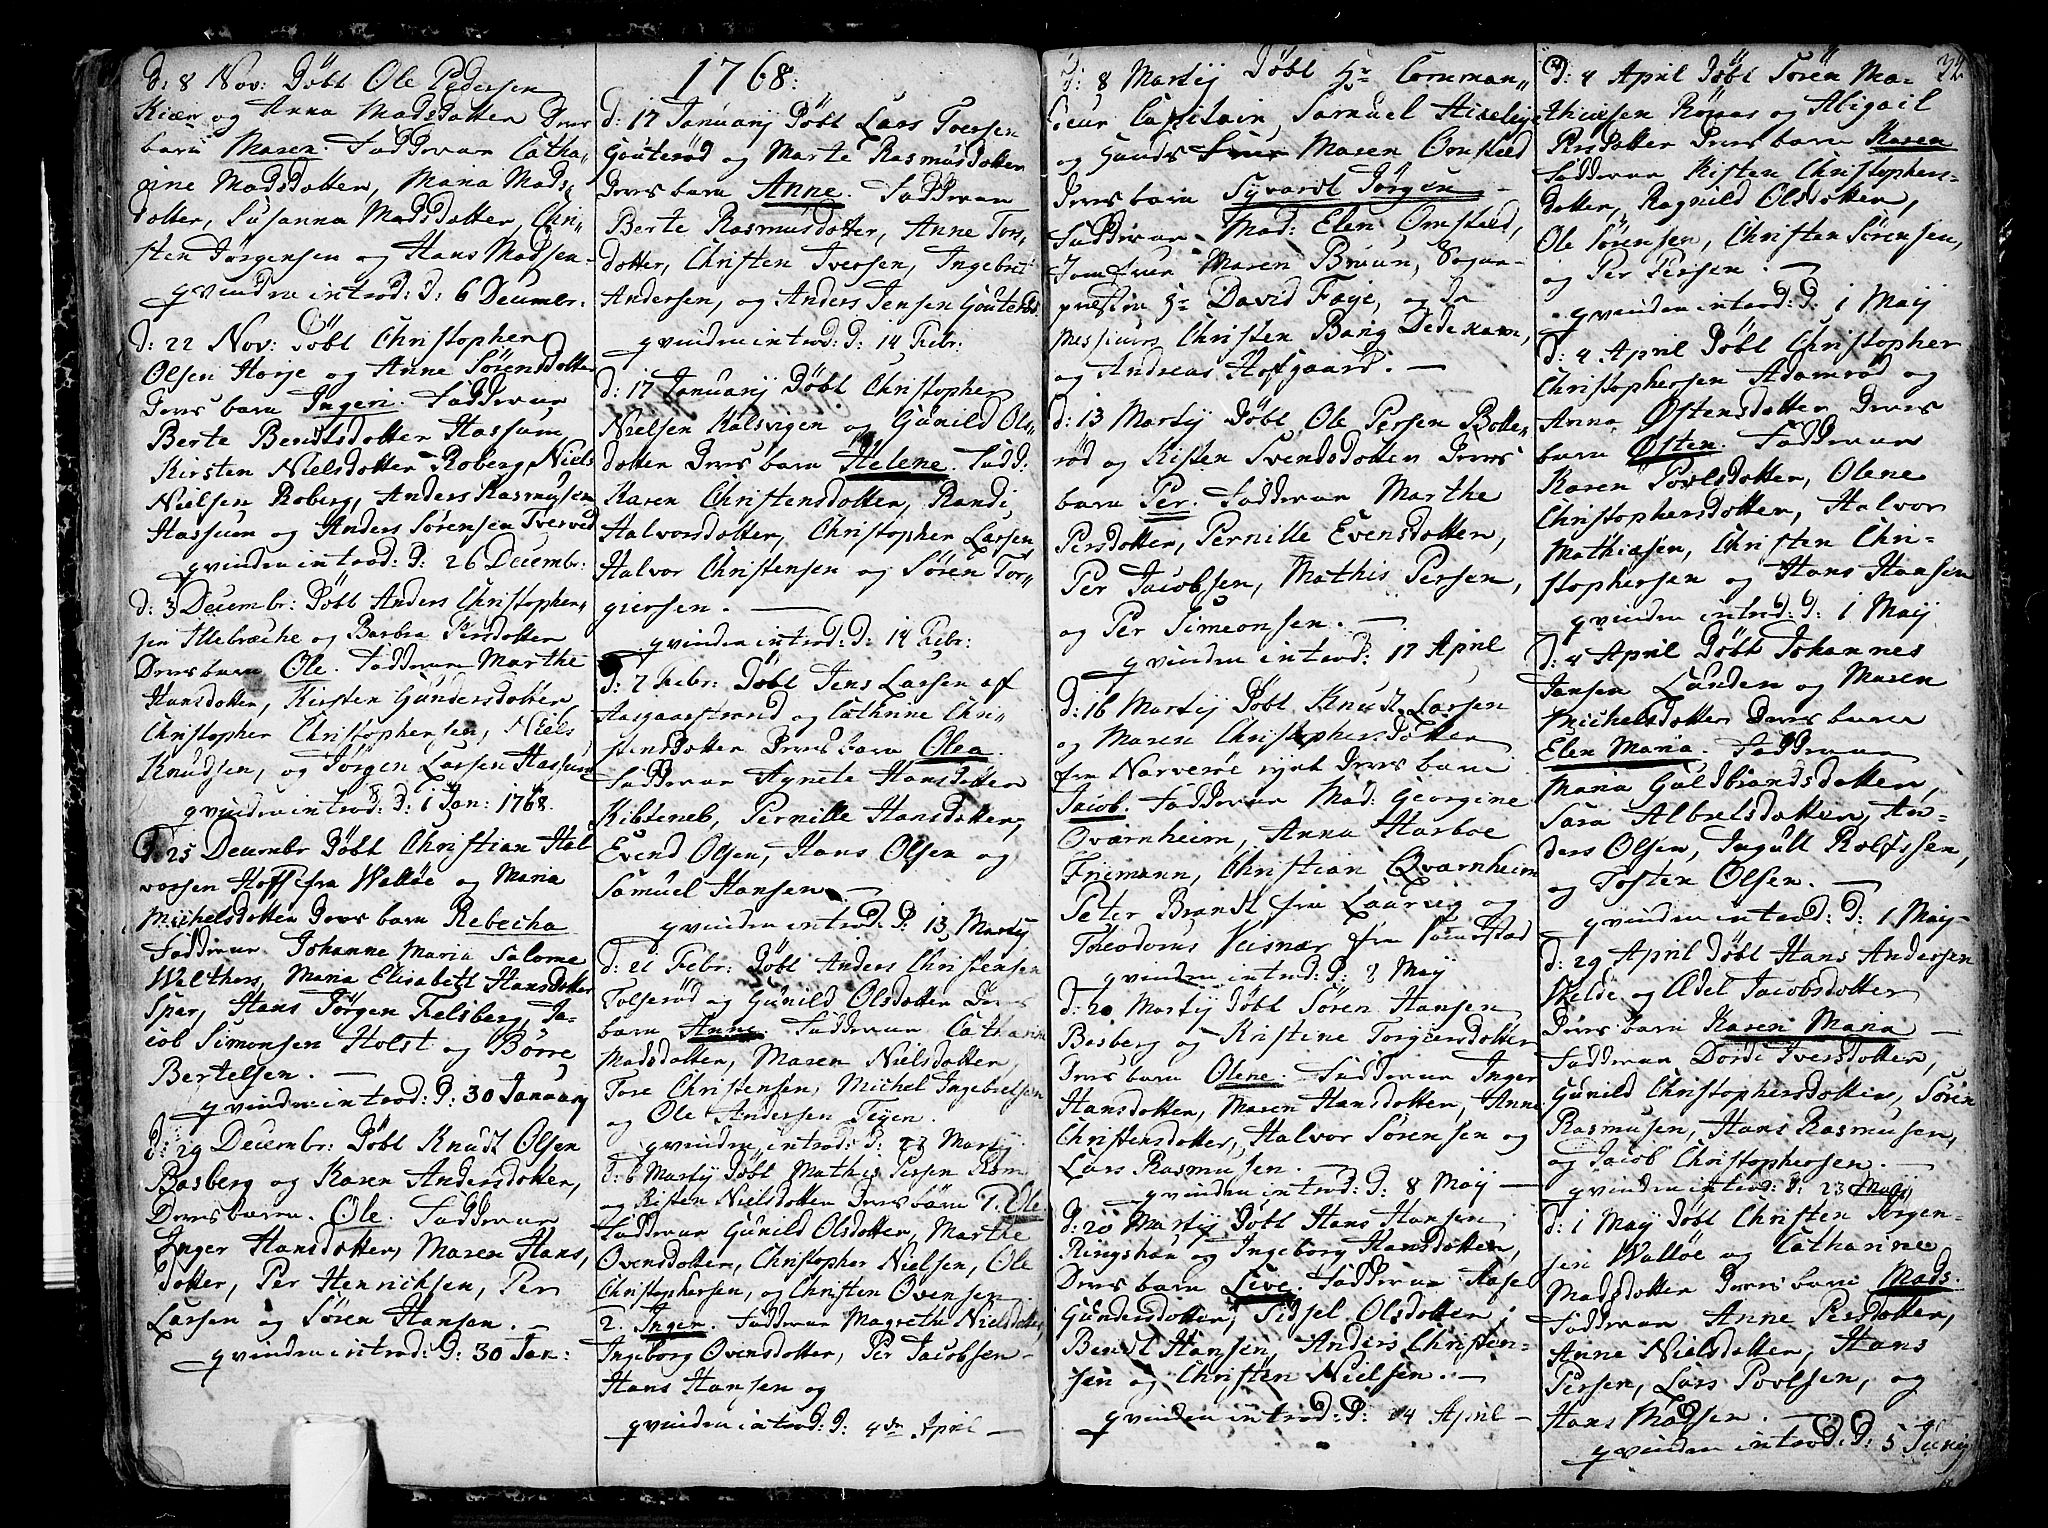 d: 8 Nov: Döbt Ole Pedersen
Kiær og Anna Madsdotter Deres
barn Maren. Fadderne Catha„
rine Madsdotter, Maria Mads„
dotter, Susanna Madsdotter, Chri„
sten Jörgensen og Hans Madsen –
qvinden introd: d: 6 Decembr:
d: 22 Nov: Döbt Christopher
Olsen Horje og Anne Sörensdotter
Deres barn Ingeri. Fadderne
Berte Bendtsdotter Hassum,
Kirsten Nielsdotter Roberg, Niels
Nielsen Roberg, Anders Rasmusen
Hassum og Anders Sörensen Tverved
qvinden introd: d: 26 Decembr:
d: 3 Decembr: Döbt Anders Christopher„
sen Illebræche og Barbra Persdotter
Deres barn Ole. Fadderne Marthe
Hansdotter, Kirsten Gundersdotter,
Christopher Christophersen, Niels
Knudsen, og Jörgen Larsen Hassum
qvinden introd: d: 1 Jan: 1768.
d: 25 Decembr Döbt Christian Hal
vorsen Hoff fra Walløe og Maria
Michelsdotter Deres barn Rebecha
Fadderne Johanne Maria Salome
Walthers, Maria Elisabett Hansdotter
Spar, Hans Jörgen Felsberg, Ja„
cob Simonsen Holst og Börre
Bertelsen. —
qvinden introd: d: 30 January
d: 29 Decembr: Döbt Knudt Olsen
Basberg og Karen Andersdotter,
Deres barn. Ole. Fadderne
Inger Hansdotter, Maren Hans„
dotter, Per Henrichsen, Per
Larsen og Sören Hansen. —
qvinden introd: d: 30 Jan:
1768:
d: 17 Januarij Döbt Lars Iversen
Gouterød og Marte Rasmusdotter
Deres barn Anne. Fadderne
Berte Rasmusdotter, Anne Tors„
dotter, Christen Iversen, Ingebret
Andersen, og Anders Jensen Gouterød.
qvinden introd: d: 14 Febr:
d: 17 Januarij Döbt Christopher
Nielsen Kalsvigen og Gunild Ols„
dotter Deres barn Helene. Fadd:
Karen Christensdotter, Randi
Halvorsdotter, Christopher Larsen
Halvor Christensen og Sören Tor„
giersen. —
qvinden introd: d: 14 Febr:
d: 2 Febr: Döbt Jens Larsen af
Aasgaarstrand og Cathrine Chri„
stensdotter Deres barn Olea.
Fadderne Agnete Hansdotter
Kibseneb, Pernille Hansdotter,
Evend Olsen, Hans Olsen og
Samuel Hansen. —
qvinden introd: d: 13 Martij
d: 21 Febr: Döbt Anders Christensen
Tolserød og Gunild Olsdotter Deres
barn Anne. Fadderne Catharine
Madsdotter, Maren Nielsdotter,
Tore Christensen, Michel Ingebretsen
og Ole Andersen Teyen.
qvinden introd: d: 23 Martij
d: 6 Martij Döbt Mathis Persen Röm
og Kisten Nielsdotter Deres börn 1. Ole
Fadderne Gunild Olsdotter, Marthe
Ovensdotter, Christopher Nielsen, Ole
Christophersen, og Christen Ovensen
2. Inger. Fadderne Magrethe Nielsdotter,
Ingeborg Ovensdotter, Per Jacobsen –
Hans Hansen og
qvinden introd: d: 4de April —
d: 8 Martij Döbt Hr Comman„
deur Capitain Samuel Hiselsye
og Hands Frue Maren Omsted
Deres barn Syvardt Jörgen –
Fadderne Mad: Elen Omsted,
Jomfrue Maren Bruun, Sogne–
præsten Hr David Faye, og de
Messieurs Christen Bang Dedekam,
og Andreas Hofgaard. —
d: 13 Martij Döbt Ole Persen Botte„
rød og Kisten Svendsdotter Deres
barn Per. Fadderne Marthe
Persdotter, Pernille Evensdotter,
Per Jacobsen, Mathis Persen,
og Per Simeonsen. —
qvinden introd: 17 April
d: 16 Martij Döbt Knudt Larsen
og Maren Christophersdotter
fra Narverøe
Jacob. Fadderne Mad: Georgine
Qvarnheim, Anna Harboe
Friimann, Christian Qvarnheim
Peter Brandt fra Laurvig og
Theodorus
qvinden introd: d: 2 Maij
d: 20 Martij Döbt Sören Hansen
Basberg og Kristine Torgiersdotter
Deres barn Olene. Fadderne Inger
Hansdotter, Maren Hansdotter, Anne
Christensdotter, Halvor Sörensen og
Lars Rasmusen. —
qvinden introd: d: 8 Maij —
d: 20 Martij Döbt Hans Hansen
Ringshau og Ingeborg Hansdotter,
Deres barn Live. Fadderne Aase
Gundersdotter, Sidsel Olsdotter,
Bendt Hansen, Anders Christen–
sen og Christen Nielsen. —
qvinden introd: d: 14 April —
32
d: 4 April Döbt Sören Ma–
thiesen Römas og Abigail
Persdotter Deres barn Karen
Fadderne Kisten Christophers–
dotter, Ragnild Olsdotter,
Ole Sörensen, Christen Sörensen,
og Per Persen. —
qvinden introd: d: 1 Maij
d: 4 April Döbt Christopher
Christophersen Adamrød og
Anna Østensdotter Deres
barn Østen. Fadderne
Karen Povlsdotter, Olene
Christophersdotter, Halvor
Mathiesen, Christen Chri–
stophersen og Hans Hansen
qvinden introd: d: 1 Maij
d: 4 April Döbt Johannes
Jansen Lunden og Maren
Michelsdotter Deres barn
Elen Maria. Fadderne
Maria Guldbrandsdotter,
Sara Albretsdotter, An–
ders Olsen, Ingult Rolfssen,
og Tosten Olsen. —
qvinden introd: d: 1 Maij–
d: 29 April Döbt Hans Andersen
Velde og Adel Jacobsdotter
Deres barn Karen Maria —
Fadderne Dordi Iversdotter,
Gunild Christophersdotter, Sören
Rasmusen, Hans Rasmusen,
og Jacob Christophersen. —
qvinden introd: d: 23 Maij
d: 1 Maij Döbt Christen Jörgen–
sen Walløe og Catharine
Madsdotter Deres barn Mads.
Fadderne Anne Persdotter,
Anne Nielsdotter, Hans
Persen, Lars Povlsen, og
Hans Madsen. —
qvinden introd: d: 5 Junij